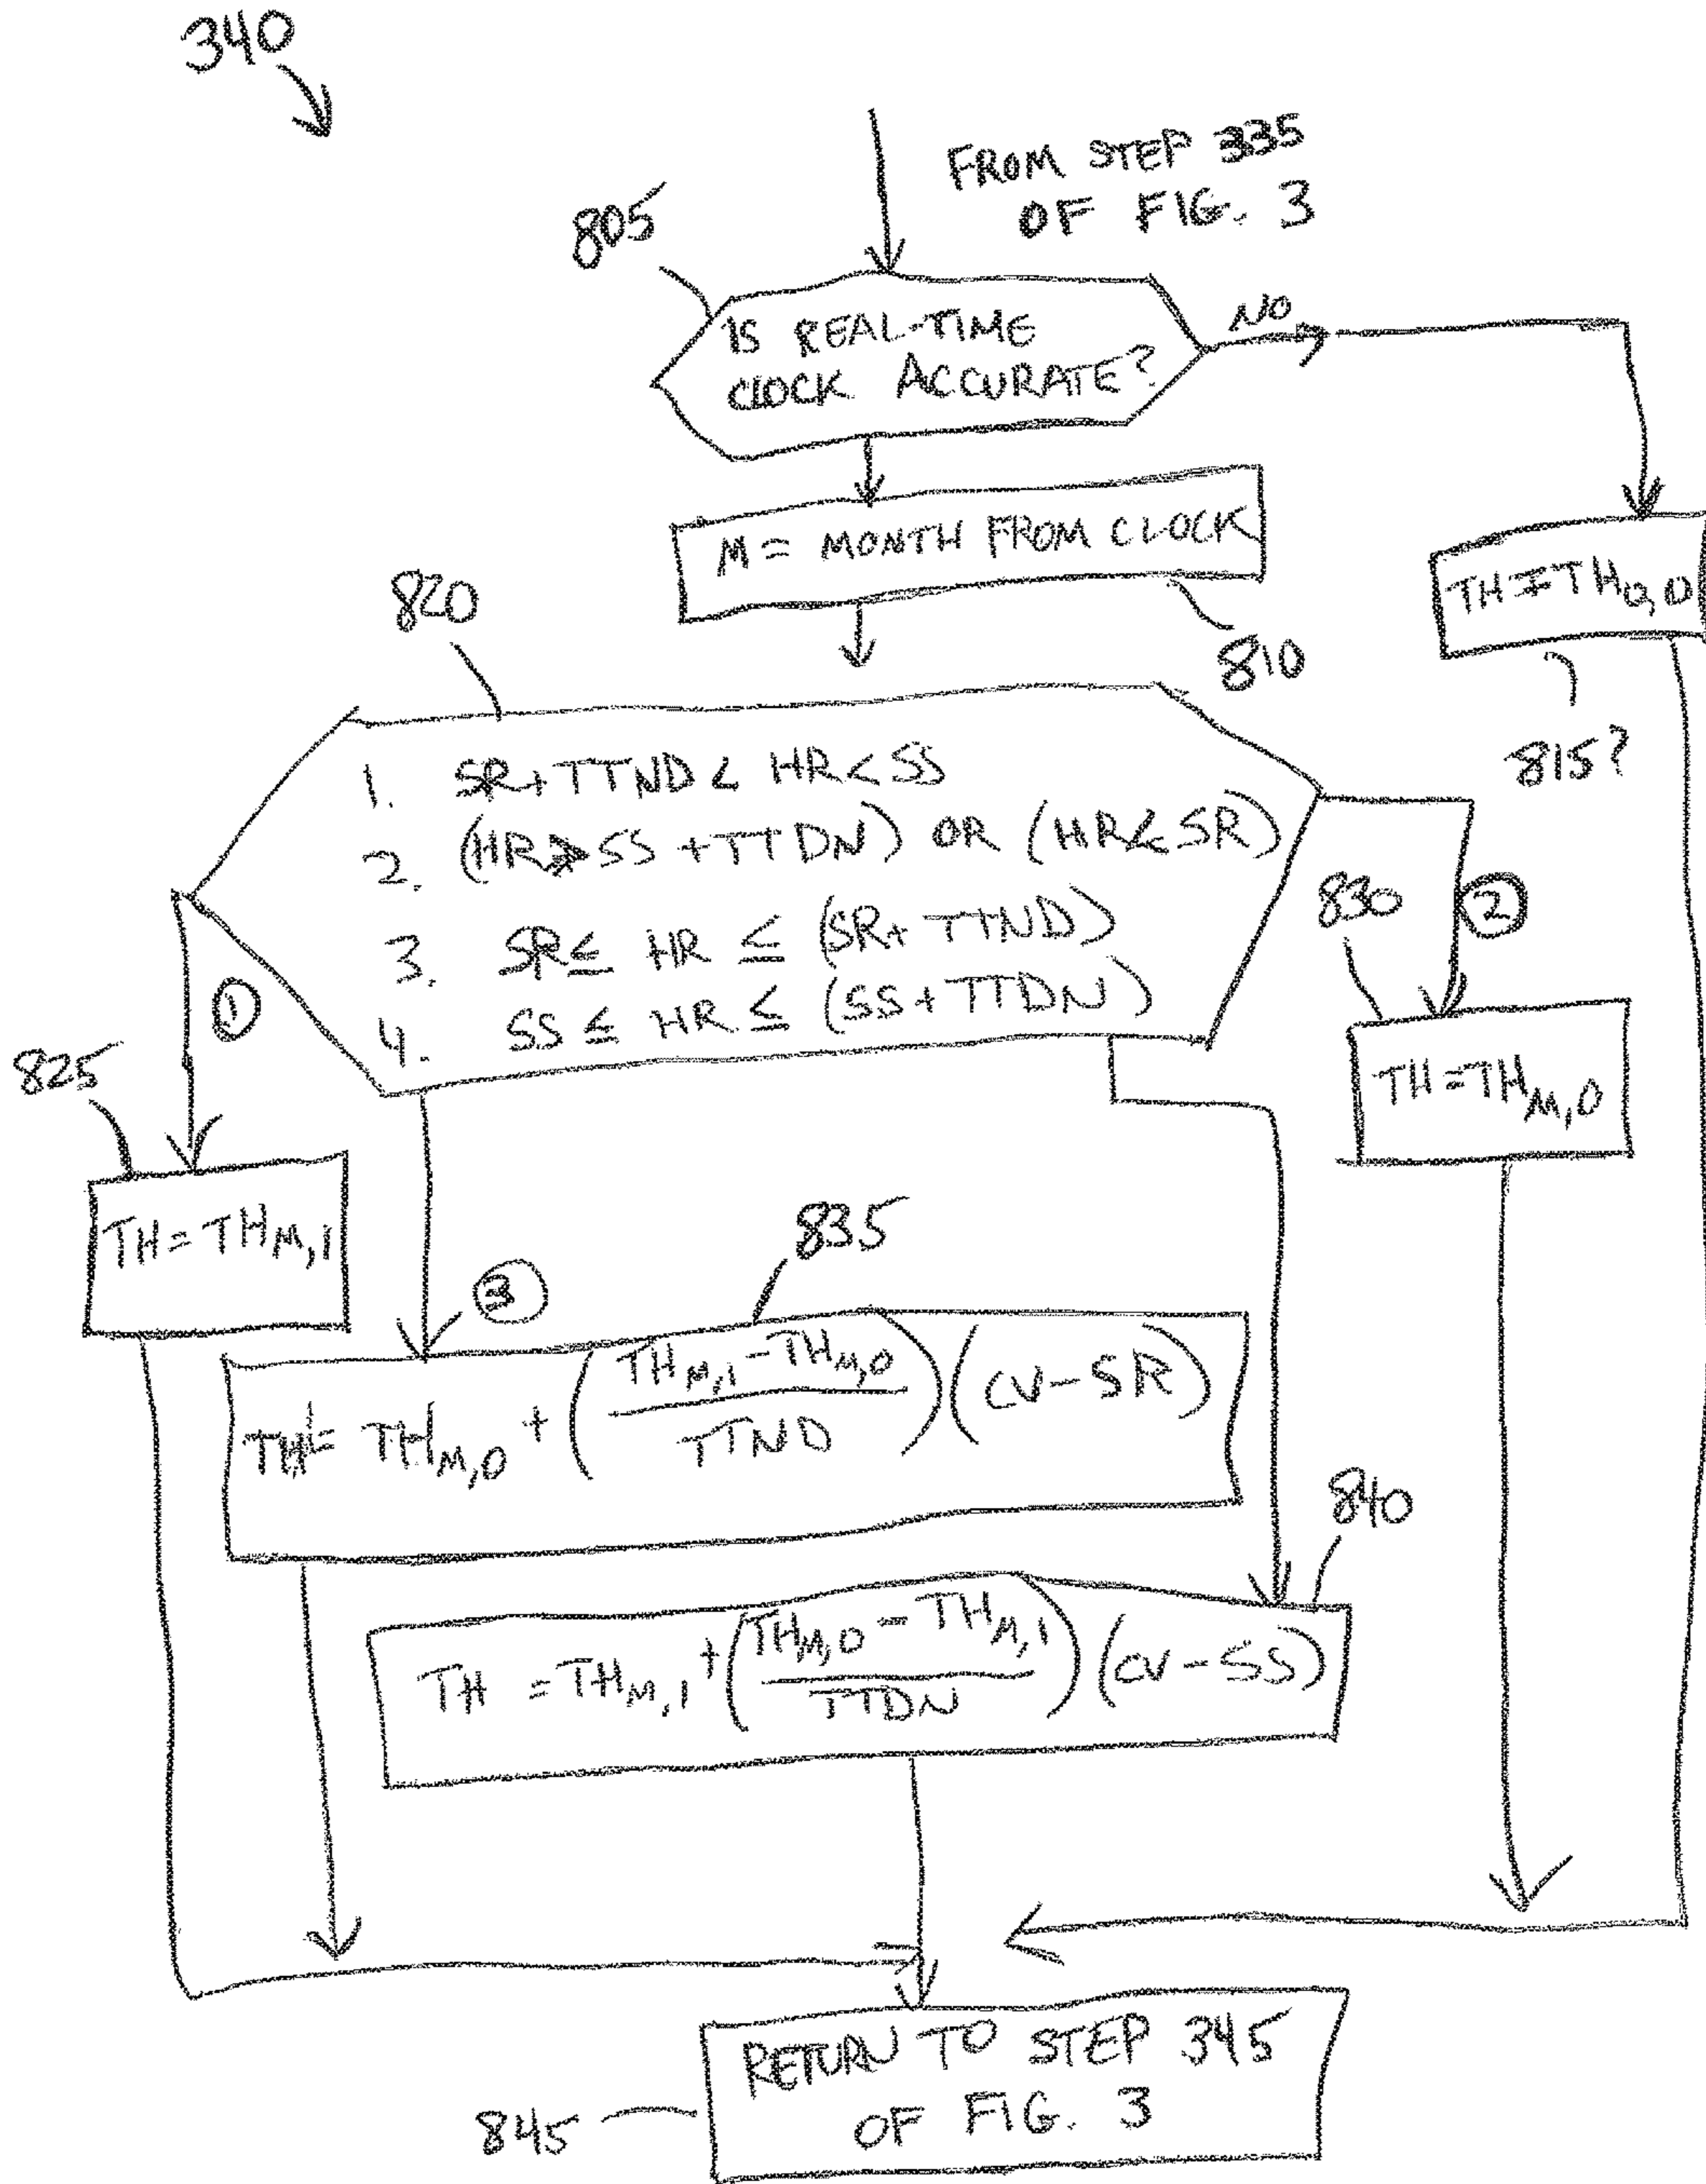 340
FROM STEP 335
OF FIG. 3
805
IS REAL-TIME
CLOCK ACCURATE?
NO
M = MONTH FROM CLOCK
810
TH = TH0,0
815?
820
1. SR + TTND < HR < SS
2. (HR > SS + TTDN) OR (HR < SR)
3. SR ≤ HR ≤ (SR + TTND)
4. SS ≤ HR ≤ (SS + TTDN)
1
830
2
TH = THM,0
825
TH = THM,1
3
835
TH = THM,0 + ((THM,1 - THM,0) / TTND)(CV - SR)
840
TH = THM,1 + ((THM,0 - THM,1) / TTDN)(CV - SS)
845
RETURN TO STEP 345
OF FIG. 3